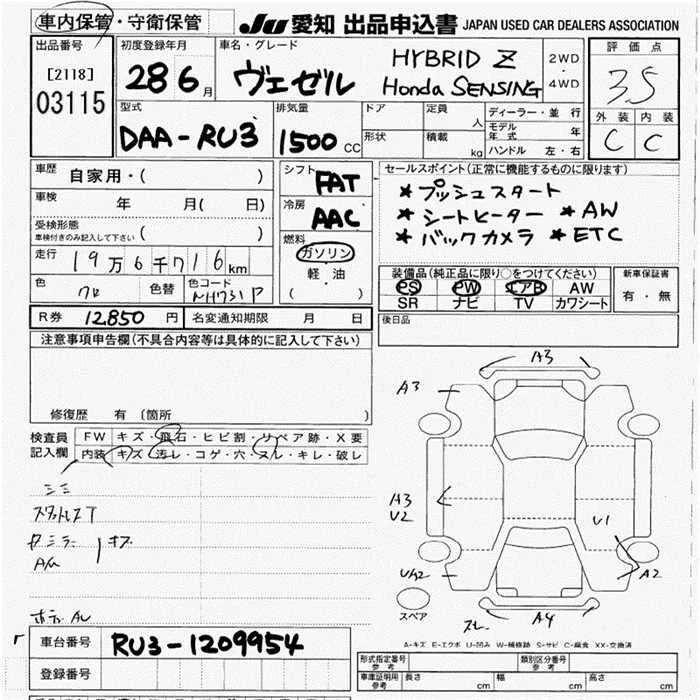 車内保管・守衛保管
JU 愛知 出品申込書 JAPAN USED CAR DEALERS ASSOCIATION
出品番号
[2118]
03115
初度登録年月
28 6月
車名・グレード
ヴェゼル
HYBRID Z
Honda SENSING
2WD
・
4WD
評価点
3.5
外装 内装
C C
型式
DAA-RU3
排気量
1500cc
ドア
形状
定員 人
積載 kg
ディーラー・並行
モデル年式 年
ハンドル 左・右
車歴 自家用・( )
車検 年 月( 日)
受検形態
車検付きのみ記入して下さい ( )
走行 19万6千716km
色
色替
色コード
NH731P
シフト
FAT
冷房
AAC
燃料
ガソリン
軽・油
( )
セールスポイント(正常に機能するものに限ります)
*プッシュスタート
*シートヒーター *AW
*バックカメラ *ETC
装備品(純正品に限り○をつけてください)
PS PW エアB AW
SR ナビ TV カワシート
新車保証書
有・無
R券 12,850円
名変通知期限 月 日
後日品
注意事項申告欄(不具合内容等は具体的に記入して下さい)
修復歴 有 (箇所 )
検査員
記入欄
FW キズ・飛石・ヒビ割・リペア跡・X要
内装 キズ・汚レ・コゲ・穴・ヌレ・キレ・破レ
A3
A3
A3
U2
U1
A2
A4
スペア
A-キズ E-エクボ U-凹み W-補修跡 S-サビ C-腐食 XX-交換済
車台番号 RU3-1209954
登録番号
形式指定番号
参考
類別区分番号
参考
車庫証明用
参考
長さ cm 幅 cm 高さ cm